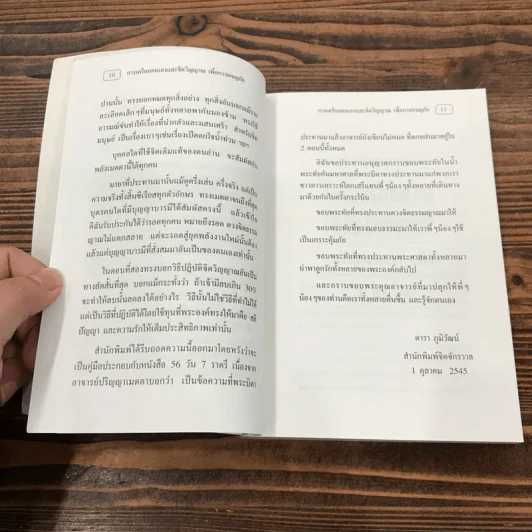 10 การเตรียมตนเองและจิตวิญญาณ เพื่อการผจญภัย
ปานนั้น ทรงบอกหมดทุกสิ่งอย่าง ทุกสิ่งอันบอกแม้ราย
ละเอียดเล็กๆที่มนุษย์ทั้งหลายพากันมองข้าม ทรงใช้
อารมณ์ขันทำให้เรื่องที่น่ากลัวและแสนเศร้า สำหรับจิต
มนุษย์ เป็นเรื่องเบาๆเช่นเรื่องเปิดตกใจน้ำท่วม ฯลฯ
บุคคลใดที่ใช้จิตเดิมแท้ของตนอ่าน จะสัมผัสรับ
พลังเมตตานี้ได้ทุกคน
มายาที่ประทานมานั้นแม้ดูครึ่งเล่น ครึ่งจริง แต่เป็น
ความจริงทั้งสิ้นซีเรียสทุกตัวอักษร ทรงเมตตาจนถึงที่สุด
บุตรคนใดที่มีบุญญาบารมีได้สัมผัสตรงนี้ แล้วเข้าใจ
ดิฉันรับประกันได้ว่ารอดทุกคน หมายถึงรอด ดวงจิตธรรม
ญาณไม่แตกสลาย แต่จะรอดสู่ยุคพลังงานใหม่นั้นต้อง
แล้วแต่บุญบารมีที่สั่งสมมาอันเป็นของตนเองเท่านั้น
ในตอนที่สองทรงบอกวิธีปฏิบัติจิตวิญญาณอันเป็น
ทางลัดสั้นที่สุด บอกแม้กระทั่งว่า ถ้าเจ้ามีลบเกิน 30%
จะทำให้ลบนั้นลดลงได้อย่างไร วิธีนั้นไม่ใช่วิธีที่ทำไม่ได้
แต่เป็นวิธีที่ปฏิบัติได้โดยใช้ทุนที่พระองค์ทรงให้มาคือ สติ
ปัญญา และความรักให้เต็มประสิทธิภาพเท่านั้น
สำนักพิมพ์ได้รีบถอดความนี้ออกมาโดยหวังว่าจะ
เป็นคู่มือประกอบกับหนังสือ 56 วัน 7 ราตรี เนื่องจาก
อาจารย์ปริญญาเมตตาบอกว่า เป็นข้อความที่พระบิดา
การเตรียมตนเองและจิตวิญญาณ เพื่อการผจญภัย 11
ประทานมาแล้วอาจารย์ยังเขียนไม่หมด ที่ตกหล่นมาอยู่ใน
2 ตอนนี้ทั้งหมด
ดิฉันขอประทานอนุญาตกราบขอบพระทัยในน้ำ
พระทัยอันมหาศาลที่พระบิดาทรงประทานมาแก่พวกเรา
ชาวดาวเคราะห์โลกเสรีแทนพี่ๆน้องๆทั้งหลายที่เดินทาง
มาด้วยกันในครั้งกระโน้น
ขอบพระทัยที่ทรงประทานดวงจิตธรรมญาณมาให้
ขอบพระทัยที่ทรงมอบธรรมะมาให้เราพี่ๆน้องๆใช้
เป็นเกราะคุ้มภัย
ขอบพระทัยที่ทรงประทานพระศาสดาทั้งหลายมา
นำพาลูกรักทั้งหลายของพระองค์กลับไป
และกราบขอบพระคุณอาจารย์ที่มาปลุกให้พี่ๆ
น้องๆของท่านคือเราทั้งหลายตื่นขึ้น และรู้จักตนเอง
ดารา ภูมิวัฒน์
สำนักพิมพ์จิตจักรวาล
1 ตุลาคม 2545